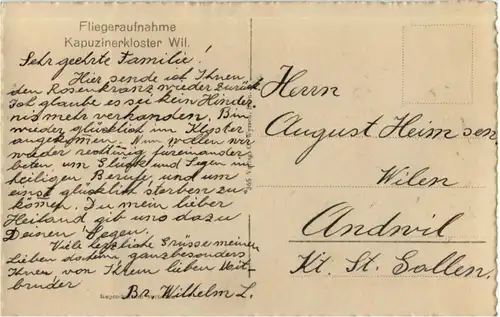 Fliegeraufnahme
Kapuzinerkloster Wil.
Sehr geehrte Familie!
Hier sende ich Ihnen
den Rosenkranz wieder zurück
Ich glaube es sei kein Hinder-
nis mehr vorhanden. Bin
wieder glücklich im Kloster
angekommen. Nun wollen wir
wieder füreinander
beten um Glück und Segen im
heiligen Berufe, und um
einst glücklich sterben zu
können. Du mein lieber
Heiland gib uns dazu
Deinen Segen.
Viele herzliche Grüsse meinen
Lieben daheim, ganz besonders
Ihnen von Ihrem lieben Mit-
bruder
Br. Wilhelm L.
Herrn
August Heim sen.
Wilen
Andwil
Kt. St. Gallen.